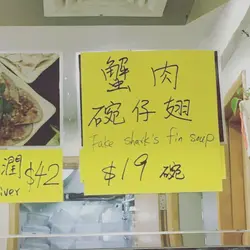 蟹肉
碗仔翅
Fake shark's fin soup
$19 碗
潤 $42
iver